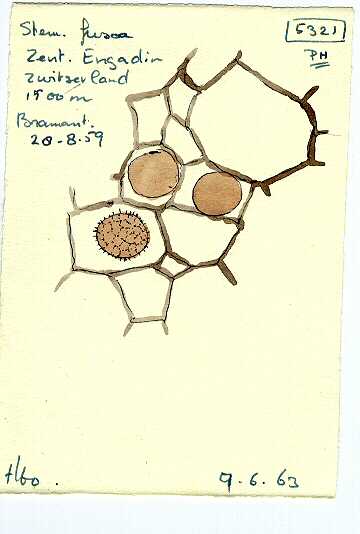 Stem. fusca
Zent. Engadin
Zwitserland
1500 m
Bramant.
20-8-59
5321
PH
9.6.63